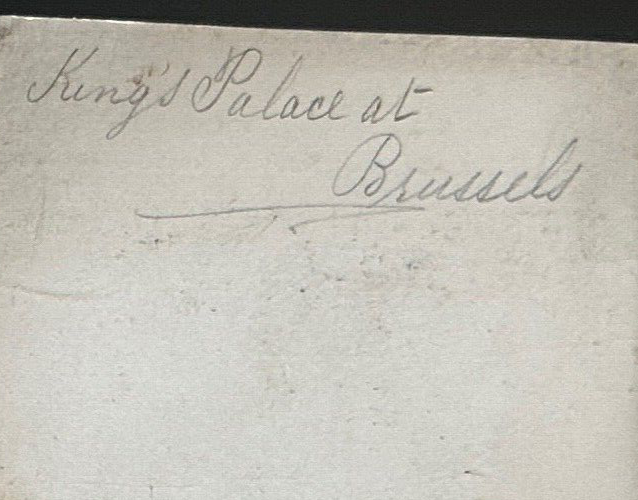 King's Palace at
Brussels